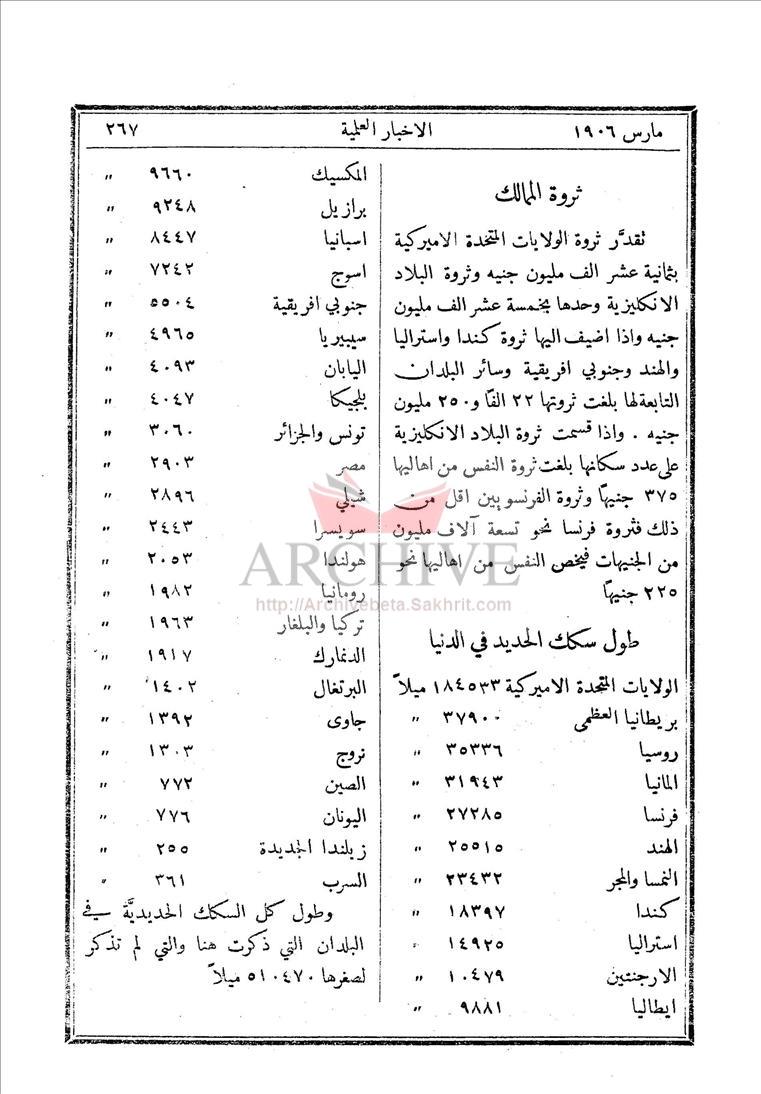 مارس ١٩٠٦ الاخبار العلمية ٢٦٧
ثروة الممالك
تقدَّر ثروة الولايات المتحدة الاميركية
بثمانية عشر الف مليون جنيه وثروة البلاد
الانكليزية وحدها بخمسة عشر الف مليون
جنيه واذا اضيف اليها ثروة كندا واستراليا
والهند وجنوبي افريقية وسائر البلدان
التابعة لها بلغت ثروتها ٢٢ الفًا و٢٥٠ مليون
جنيه . واذا قسمت ثروة البلاد الانكليزية
على عدد سكانها بلغت ثروة النفس من اهاليها
٣٧٥ جنيهًا وثروة الفرنسويين اقل من
ذلك فثروة فرنسا نحو تسعة آلاف مليون
من الجنيهات فيخص النفس من اهاليها نحو
٢٢٥ جنيهًا
طول سكك الحديد في الدنيا
الولايات المتحدة الاميركية ١٨٤٥٣٣ ميلاً
بريطانيا العظمى ٣٧٩٠٠ "
روسيا ٣٥٣٣٦ "
المانيا ٣١٩٤٣ "
فرنسا ٢٧٢٨٥ "
الهند ٢٥٥١٥ "
النمسا والمجر ٢٣٤٣٢ "
كندا ١٨٣٩٧ "
استراليا ١٤٩٢٥ "
الارجنتين ١٠٤٧٩ "
ايطاليا ٩٨٨١ "
المكسيك ٩٦٦٠ "
برازيل ٩٢٤٨ "
اسبانيا ٨٤٤٧ "
اسوج ٧٢٤٢ "
جنوبي افريقية ٥٥٠٤ "
سيبيريا ٤٩٦٥ "
اليابان ٤٠٩٣ "
بلجيكا ٤٠٤٧ "
تونس والجزائر ٣٠٦٠ "
مصر ٢٩٠٣ "
شيلي ٢٨٩٦ "
سويسرا ٢٤٤٣ "
هولندا ٢٠٥٣ "
رومانيا ١٩٨٢ "
تركيا والبلغار ١٩٦٣ "
الدنمارك ١٩١٧ "
البرتغال ١٤٠٢ "
جاوى ١٣٩٢ "
نروج ١٣٠٣ "
الصين ٧٧٢ "
اليونان ٧٧٦ "
زيلندا الجديدة ٢٥٥ "
السرب ٣٦١ "
وطول كل السكك الحديديَّة في
البلدان التي ذكرت هنا والتي لم تذكر
لصغرها ٥١٠٤٧٠ ميلاً
ARCHIVE
http://Archivebeta.Sakhrit.com